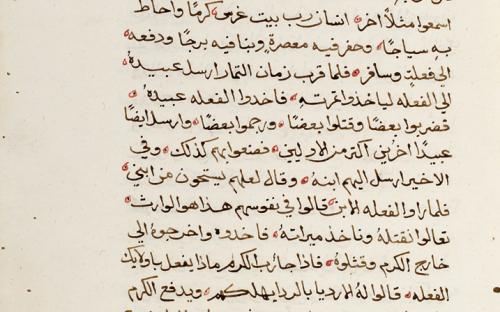 اسمعوا مثلاً اخر انسان رب بيت غرس كرمًا واحاط
به سياجًا وحفر فيه معصرةً وبنا فيه برجًا ودفعه
الي فعلةٍ وسافر فلما قرب زمان الثمار ارسل عبيدهُ
الي الفعله لياخذوا ثمرته فاخدوا الفعله عبيدهُ
فضربوا بعضًا وقتلوا بعضًا ورجموا بعضًا وارسل ايضًا
عبيدًا اخرين اكتر من الاولين فصنعوا بهم كذلك وفي
الاخير ارسل اليهم ابنهُ وقال لعلهم يستحون من ابني
فلما راوا الفعله الابن قالوا في نفوسهم هذا هو الوارث
تعالوا نقتلهُ وناخذ ميراته فاخدوهُ واخرجوهُ الي
خارج الكرم وقتلوهُ فاذا جا رب الكرم ماذا يفعل باولايك
الفعله قالوا لهُ الارديا بالردا يهلكهم ويدفع الكرم